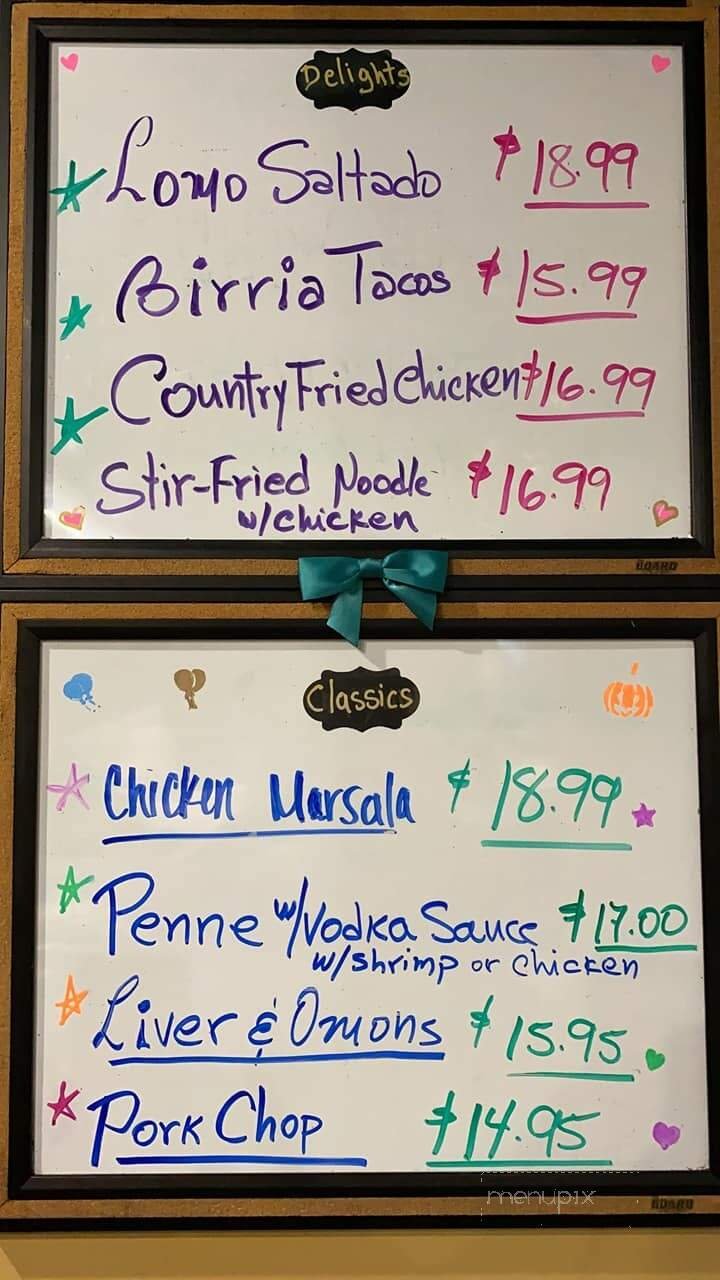 Delights
Lomo Saltado $18.99
Birria Tacos $15.99
Country Fried Chicken $16.99
Stir-Fried Noodle $16.99
w/chicken
BOARD
Classics
Chicken Marsala $18.99
Penne w/Vodka Sauce $17.00
w/shrimp or chicken
Liver & Onions $15.95
Pork Chop $14.95
menupix
BOARD